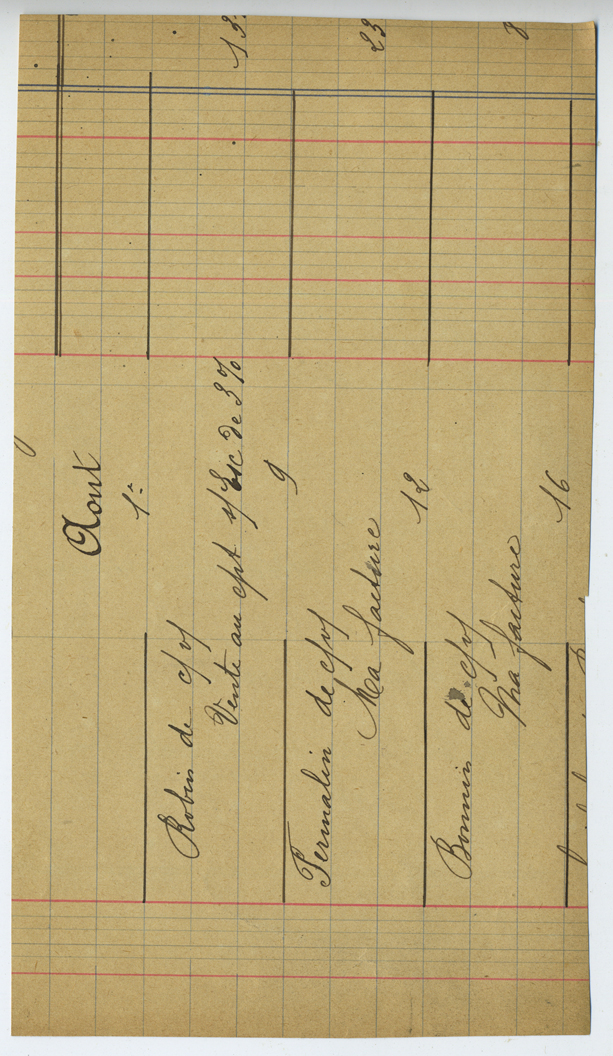 Aout
1er
Robin de c/v/
Vente au cpt s/ Esc de 3% 13
9
Permalin de c/v/
Ma facture 23
12
Bonnin de c/v/
Ma facture
16